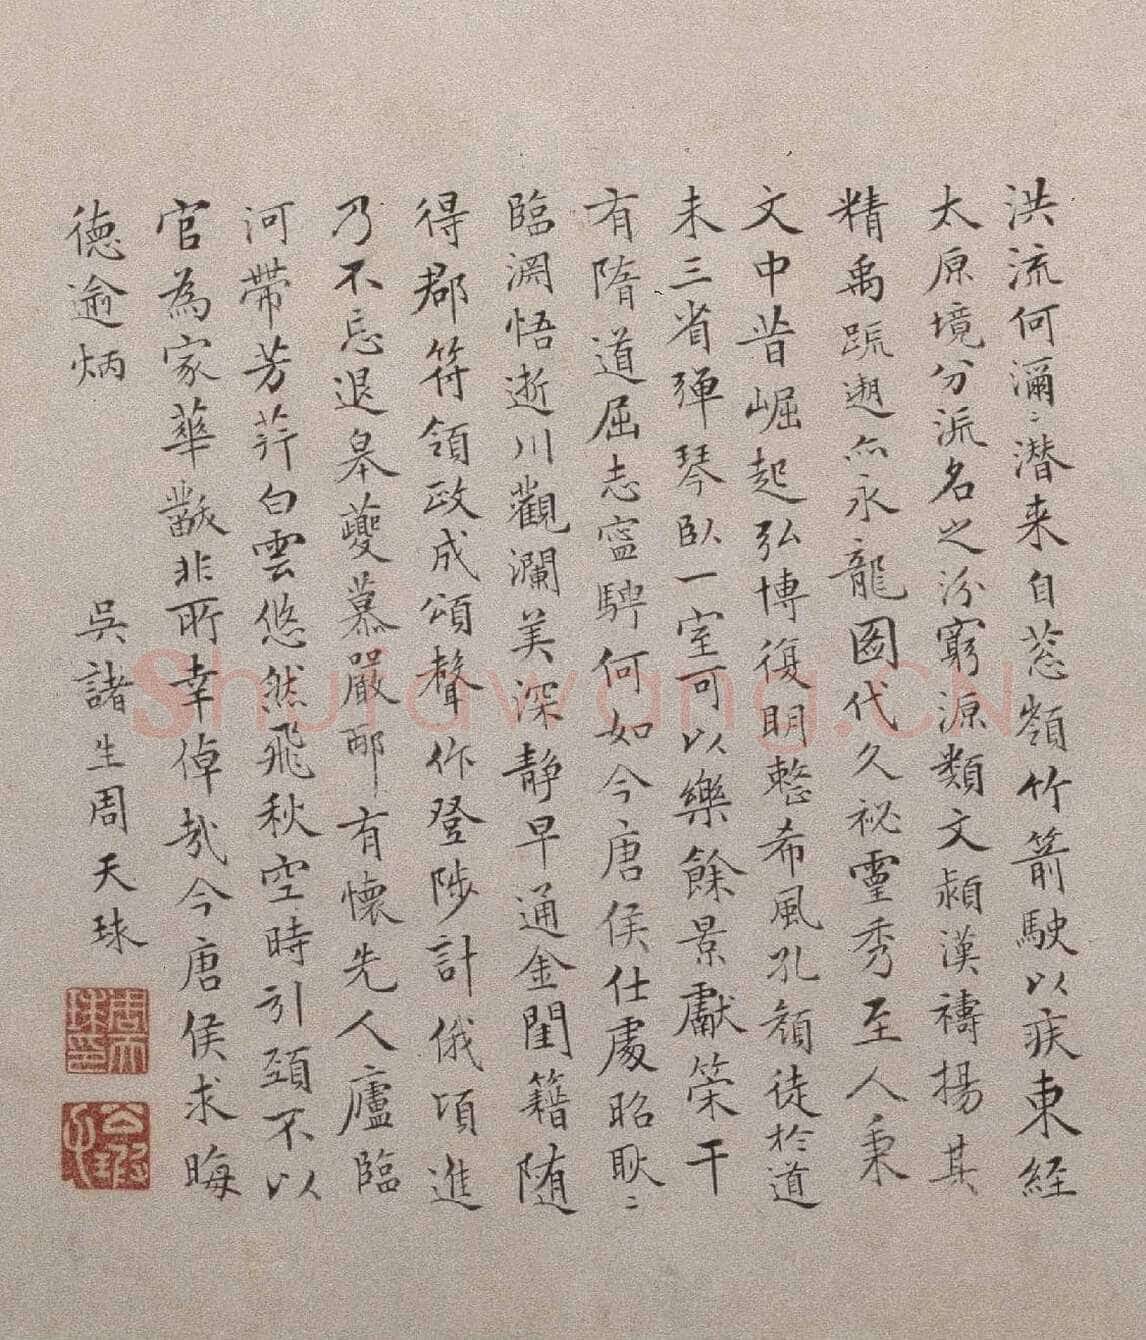 洪流何瀰〻潛来自葱嶺竹箭駛以疾東経
太原境分派名之汾窮源類文潁漢禱揚其
精禹䟽遡亦永龍圖代久祕靈秀至人秉
文中昔崛起弘博復明整希風孔顏徒於道
未三省彈琴臥一室可以樂餘景獻策干
有隋道屈志寧騁何如今唐侯仕處昭耿〻
臨淵悟逝川觀瀾美深靜早通金閨籍随
得郡符領政成頌聲作登陟計俄頃進
乃不忘退皋夔慕嚴邴有懷先人廬臨
河帶芳荇白雲悠然飛秋空時引頸不以
官為家華黻非所幸倬哉今唐侯求晦
德逾炳
吳諸生周天球
Shufawang.CN